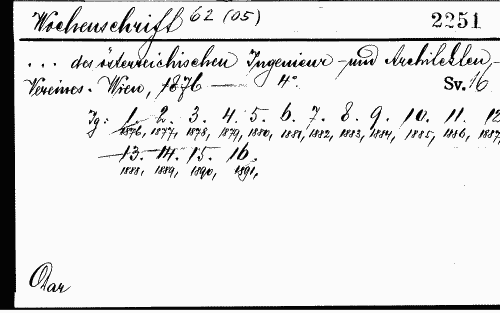 Wochenschrift 62 (05) 2251
... des österreichischen Ingenieur- und Architekten-
Vereines. Wien, 1876 — 4° Sv. 16
Jg: 1. 2. 3. 4. 5. 6. 7. 8. 9. 10. 11. 12
1876, 1877, 1878, 1879, 1880, 1881, 1882, 1883, 1884, 1885, 1886, 1887,
13. 14. 15. 16.
1888, 1889, 1890, 1891,
Dar